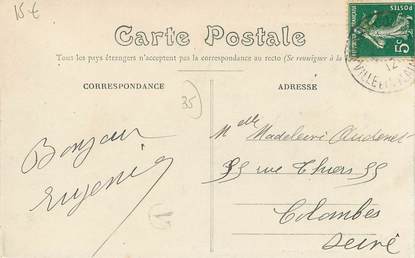 15€
Carte Postale
Tous les pays étrangers n'acceptent pas la correspondance au recto (Se renseigner à la
CORRESPONDANCE
ADRESSE
35
Bonjour
Eugenie
1
Melle Madeleine Audonet
55 rue Thiers 55
Colombes
Seine
POSTES
5c
12